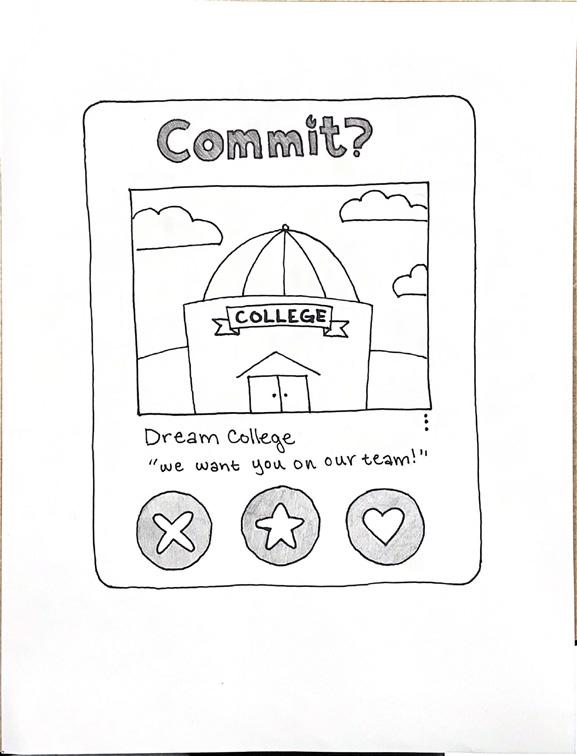 Commit?
COLLEGE
Dream College
"we want you on our team!"